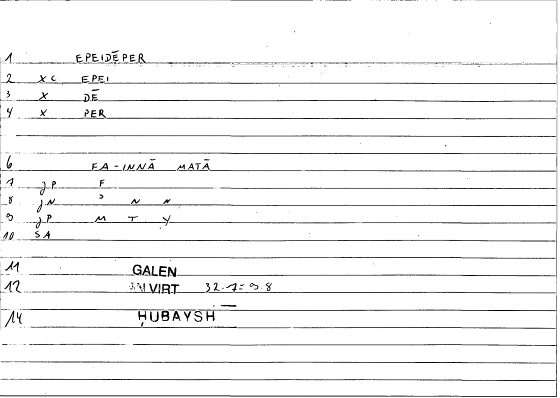 1 EPEIDĒPER
2 XC EPEI
3 X DĒ
4 X PER
6 FA-INNĀ MATĀ
7 jP F
8 jN ʾ N N
9 jP M T Y
10 SA
11 GALEN
12 VIRT
14 ḤUBAYSH